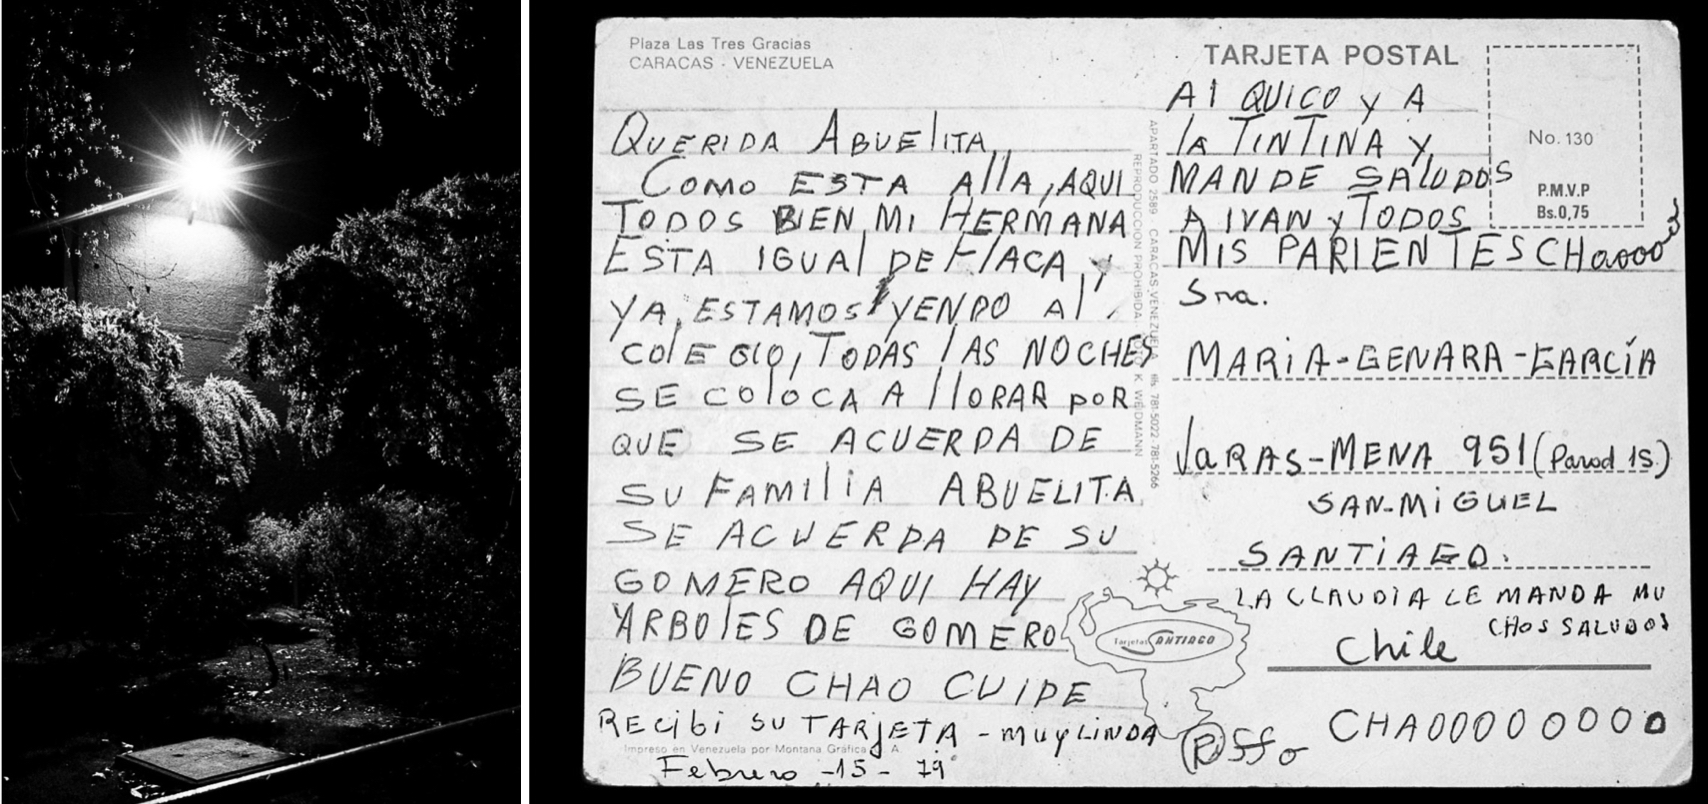 Plaza Las Tres Gracias
CARACAS - VENEZUELA
QUERIDA ABUELITA
COMO ESTA AllA, AQUI
TODOS BIEN, MI HERMANA
ESTA IGUAl DE FlACA, y
YA, ESTAMOS YENDO Al
COlEGIO, TODAS lAS NOCHES
SE COlOCA A llORAR POR
QUE SE ACUERDA DE
SU FAMIlIA ABUELITA
SE ACUERDA DE SU
GOMERO AQUI HAY
ARBOlES DE GOMERO
BUENO CHAO CUIDE
RECIBI SU TARJETA - MUY LINDA
Impreso en Venezuela por Montana Gráfica S. A.
Febrero -15- 79
REPRODUCCION PROHIBIDA. K. WEIDMANN
APARTADO 2589 - CARACAS-VENEZUELA tlfs. 781-5022 - 781-5266
TARJETA POSTAL
No. 130
P.M.V.P
Bs.0,75
Al QUICO y A
lA TINTINA y
MANDE SALUDOS
A IVAN y TODOS
MIS PARIENTES CHaooo
Sra.
MARiA-GENARA-GARCÍA
VARAS-MENA 951 (Parad 15.)
SAN-MiGUEL
SANTiAGO.
LA CLAUDIA LE MANDA MU
CHOS SALUDOS
Chile
Tarjetas SANTIAGO
CHAOOOOOOOO